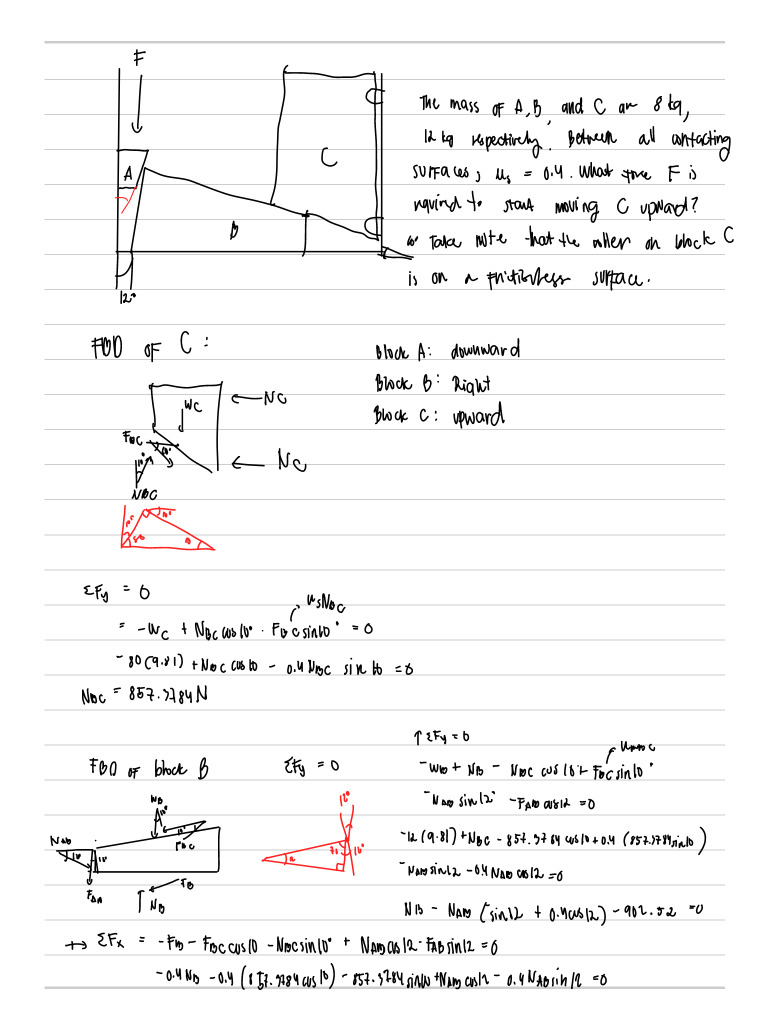 F
The mass of A, B, and C are 8 kg,
12 kg respectively. Between all contacting
surfaces, us = 0.4. What force F is
required to start moving C upward?
Take note that the roller on block C
is on a frictionless surface.
A
B
C
12°
FBD of C:
Block A: downward
Block B: Right
Block C: upward
WC
NC
FBC
10°
NC
NBC
ΣFy = 0
usNBC
= -WC + NBC cos 10° - FBC sin 10° = 0
-80(9.81) + NBC cos 10 - 0.4 NBC sin 10 = 0
NBC = 857.3784 N
FBD of block B
ΣFy = 0
↑ΣFy = 0
-WB + NB - NBC cos 10 + FBC sin 10°
-NAB sin 12° - FAB cos 12 = 0
WB
10°
FBC
NAB
12°
FBA
NB
FB
12°
-12(9.81) + NBC - 857.3784 cos 10 + 0.4 (857.3784 sin 10)
-NAB sin 12 - 0.4 NAB cos 12 = 0
NB - NAB (sin 12 + 0.4 cos 12) - 902.52 = 0
→ ΣFx = -FB - FBC cos 10 - NBC sin 10° + NAB cos 12 - FAB sin 12 = 0
-0.4 NB - 0.4 (857.3784 cos 10) - 857.3784 sin 10 + NAB cos 12 - 0.4 NAB sin 12 = 0